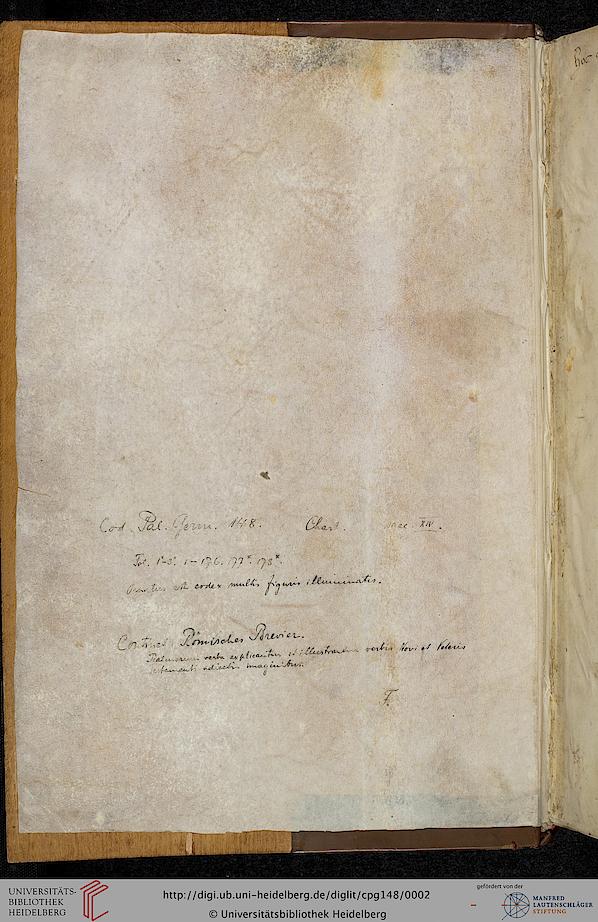 hoc
Cod. Pal. Germ. 148. Chart. saec. XIV.
Fol. 1*-3*. 1-176. 177*. 178*.
est codex multis figuris illuminatis.
Continet Römisches Brevier.
Psalmorum verba explicantur et illustrantur verbis Novi et Veteris
testamenti adiectis imaginibus.
F.
UNIVERSITÄTS-
BIBLIOTHEK
HEIDELBERG
http://digi.ub.uni-heidelberg.de/diglit/cpg148/0002
© Universitätsbibliothek Heidelberg
gefördert von der
MANFRED
LAUTENSCHLÄGER
STIFTUNG